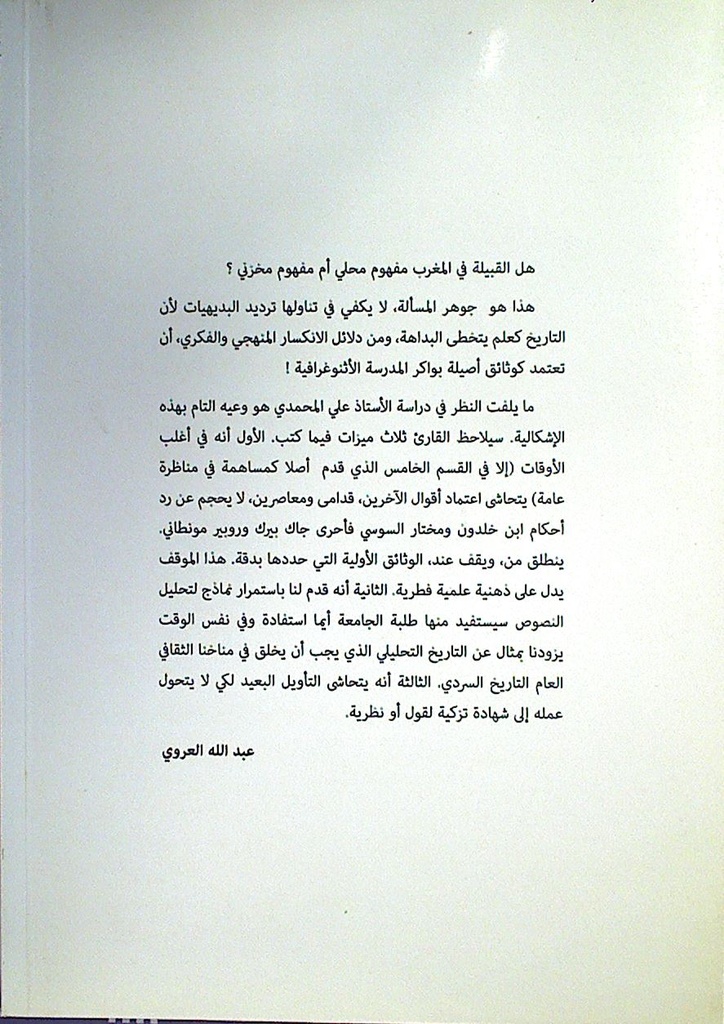 هل القبيلة في المغرب مفهوم محلي أم مفهوم مخزني ؟
هذا هو جوهر المسألة، لا يكفي في تناولها ترديد البديهيات لأن
التاريخ كعلم يتخطى البداهة، ومن دلائل الانكسار المنهجي والفكري، أن
تعتمد كوثائق أصيلة بواكر المدرسة الأثنوغرافية !
ما يلفت النظر في دراسة الأستاذ علي المحمدي هو وعيه التام بهذه
الإشكالية. سيلاحظ القارئ ثلاث ميزات فيما كتب. الأول أنه في أغلب
الأوقات (إلا في القسم الخامس الذي قدم أصلا كمساهمة في مناظرة
عامة) يتحاشى اعتماد أقوال الآخرين، قدامى ومعاصرين، لا يحجم عن رد
أحكام ابن خلدون ومختار السوسي فأحرى جاك بيرك وروبير مونطاني.
ينطلق من، ويقف عند، الوثائق الأولية التي حددها بدقة. هذا الموقف
يدل على ذهنية علمية فطرية. الثانية أنه قدم لنا باستمرار نماذج لتحليل
النصوص سيستفيد منها طلبة الجامعة أيما استفادة وفي نفس الوقت
يزودنا بمثال عن التاريخ التحليلي الذي يجب أن يخلق في مناخنا الثقافي
العام التاريخ السردي. الثالثة أنه يتحاشى التأويل البعيد لكي لا يتحول
عمله إلى شهادة تزكية لقول أو نظرية.
عبد الله العروي